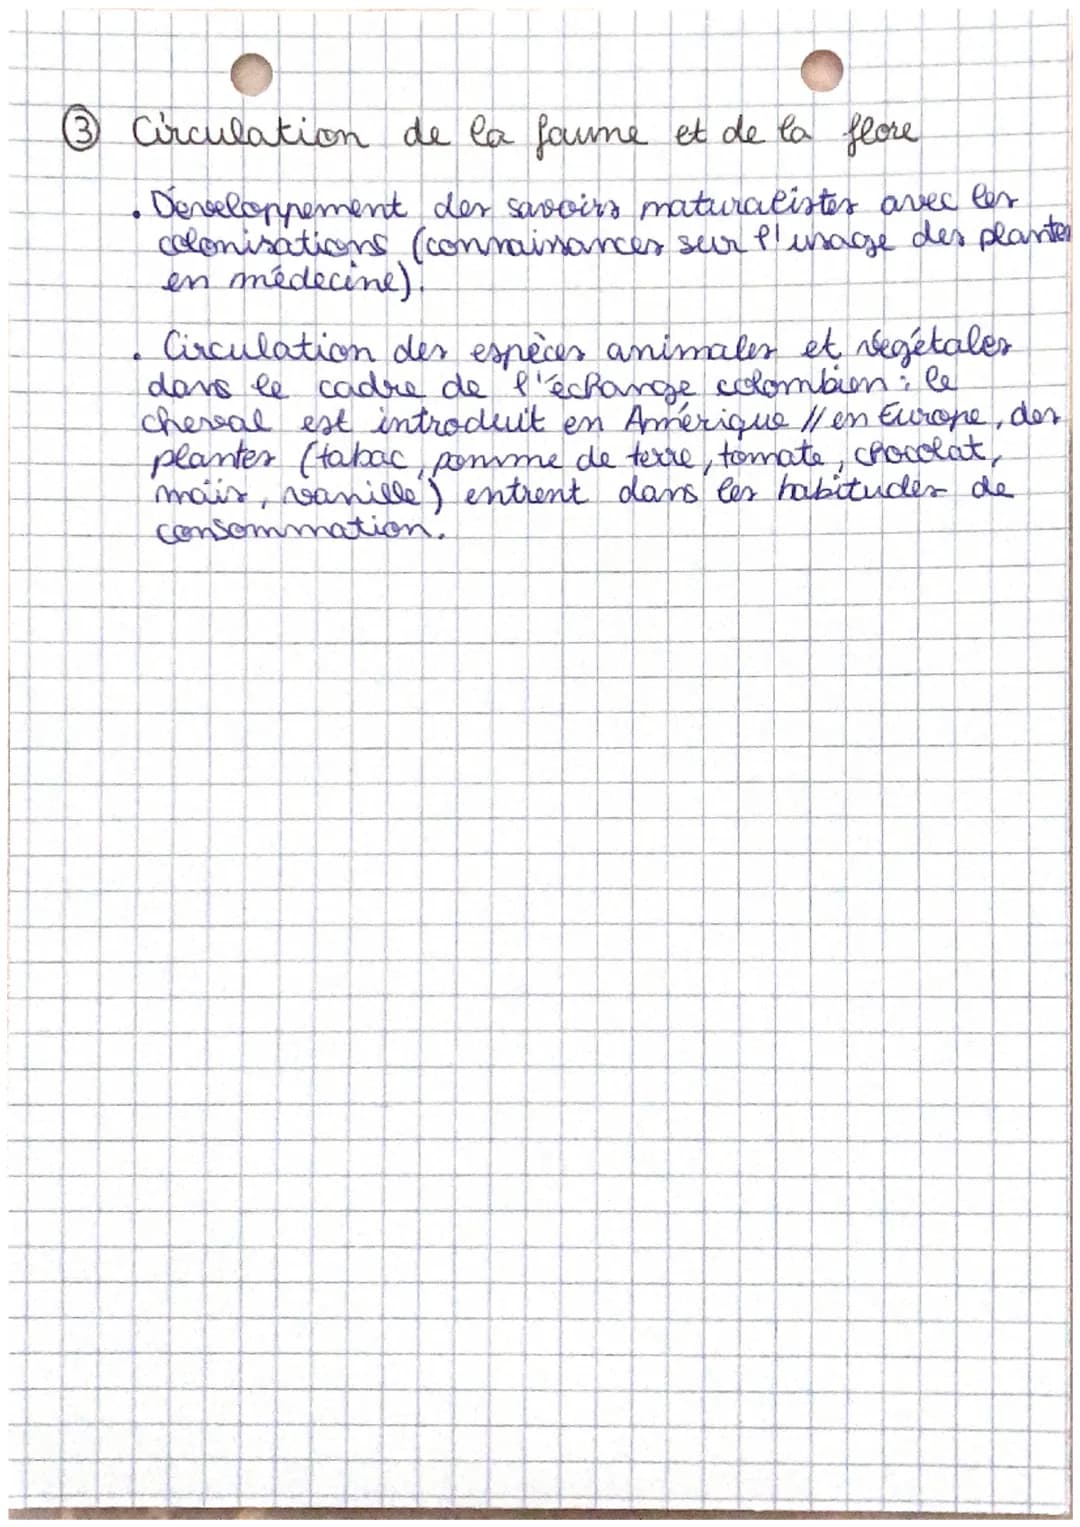 ③ Circulation de la faune et de la flore
. Développement des savoirs naturalistes avec les
colonisations (connaissances sur l'usage des plantes
en médecine).
. Circulation des espèces animales et végétales
dans le cadre de l'échange colombien : le
cheval est introduit en Amérique // en Europe, des
plantes (tabac, pomme de terre, tomate, chocolat,
maïs, vanille) entrent dans les habitudes de
consommation.